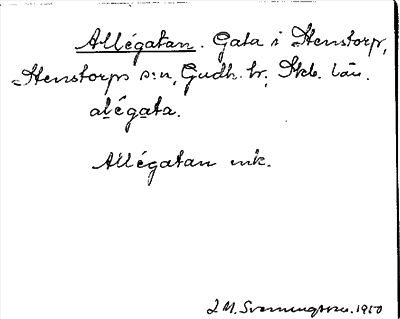 Allégatan. Gata i Stenstorp,
Stenstorps s:n, Gudh. hr, Skb. län.
alégata.
Allégatan mk.
J M. Svenningsson. 1950